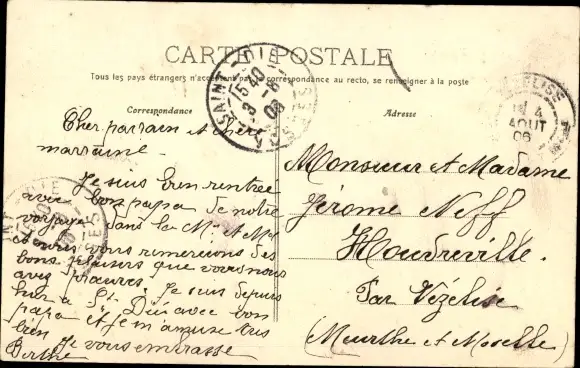 CARTE POSTALE
Tous les pays étrangers n'acceptent pas la correspondance au recto, se renseigner à la poste
Correspondance
Adresse
SAINT-DIÉ
VOSGES
15 40
3 -8
06
VÉZELISE
4
AOUT
06
Cher parrain et chère
marraine.
Je suis bien rentrée
avec bon papa de notre
voyage dans la Mthe et Mlle
nous vous remercions des
bons plaisirs que vous nous
avez procurés. Je suis depuis
hier à St Dié avec bon
papa et je m'amuse très
bien Je vous embrasse
Berthe
Monsieur et Madame
Jérôme Neff
Houdreville.
Par Vézelise
(Meurthe et Moselle)